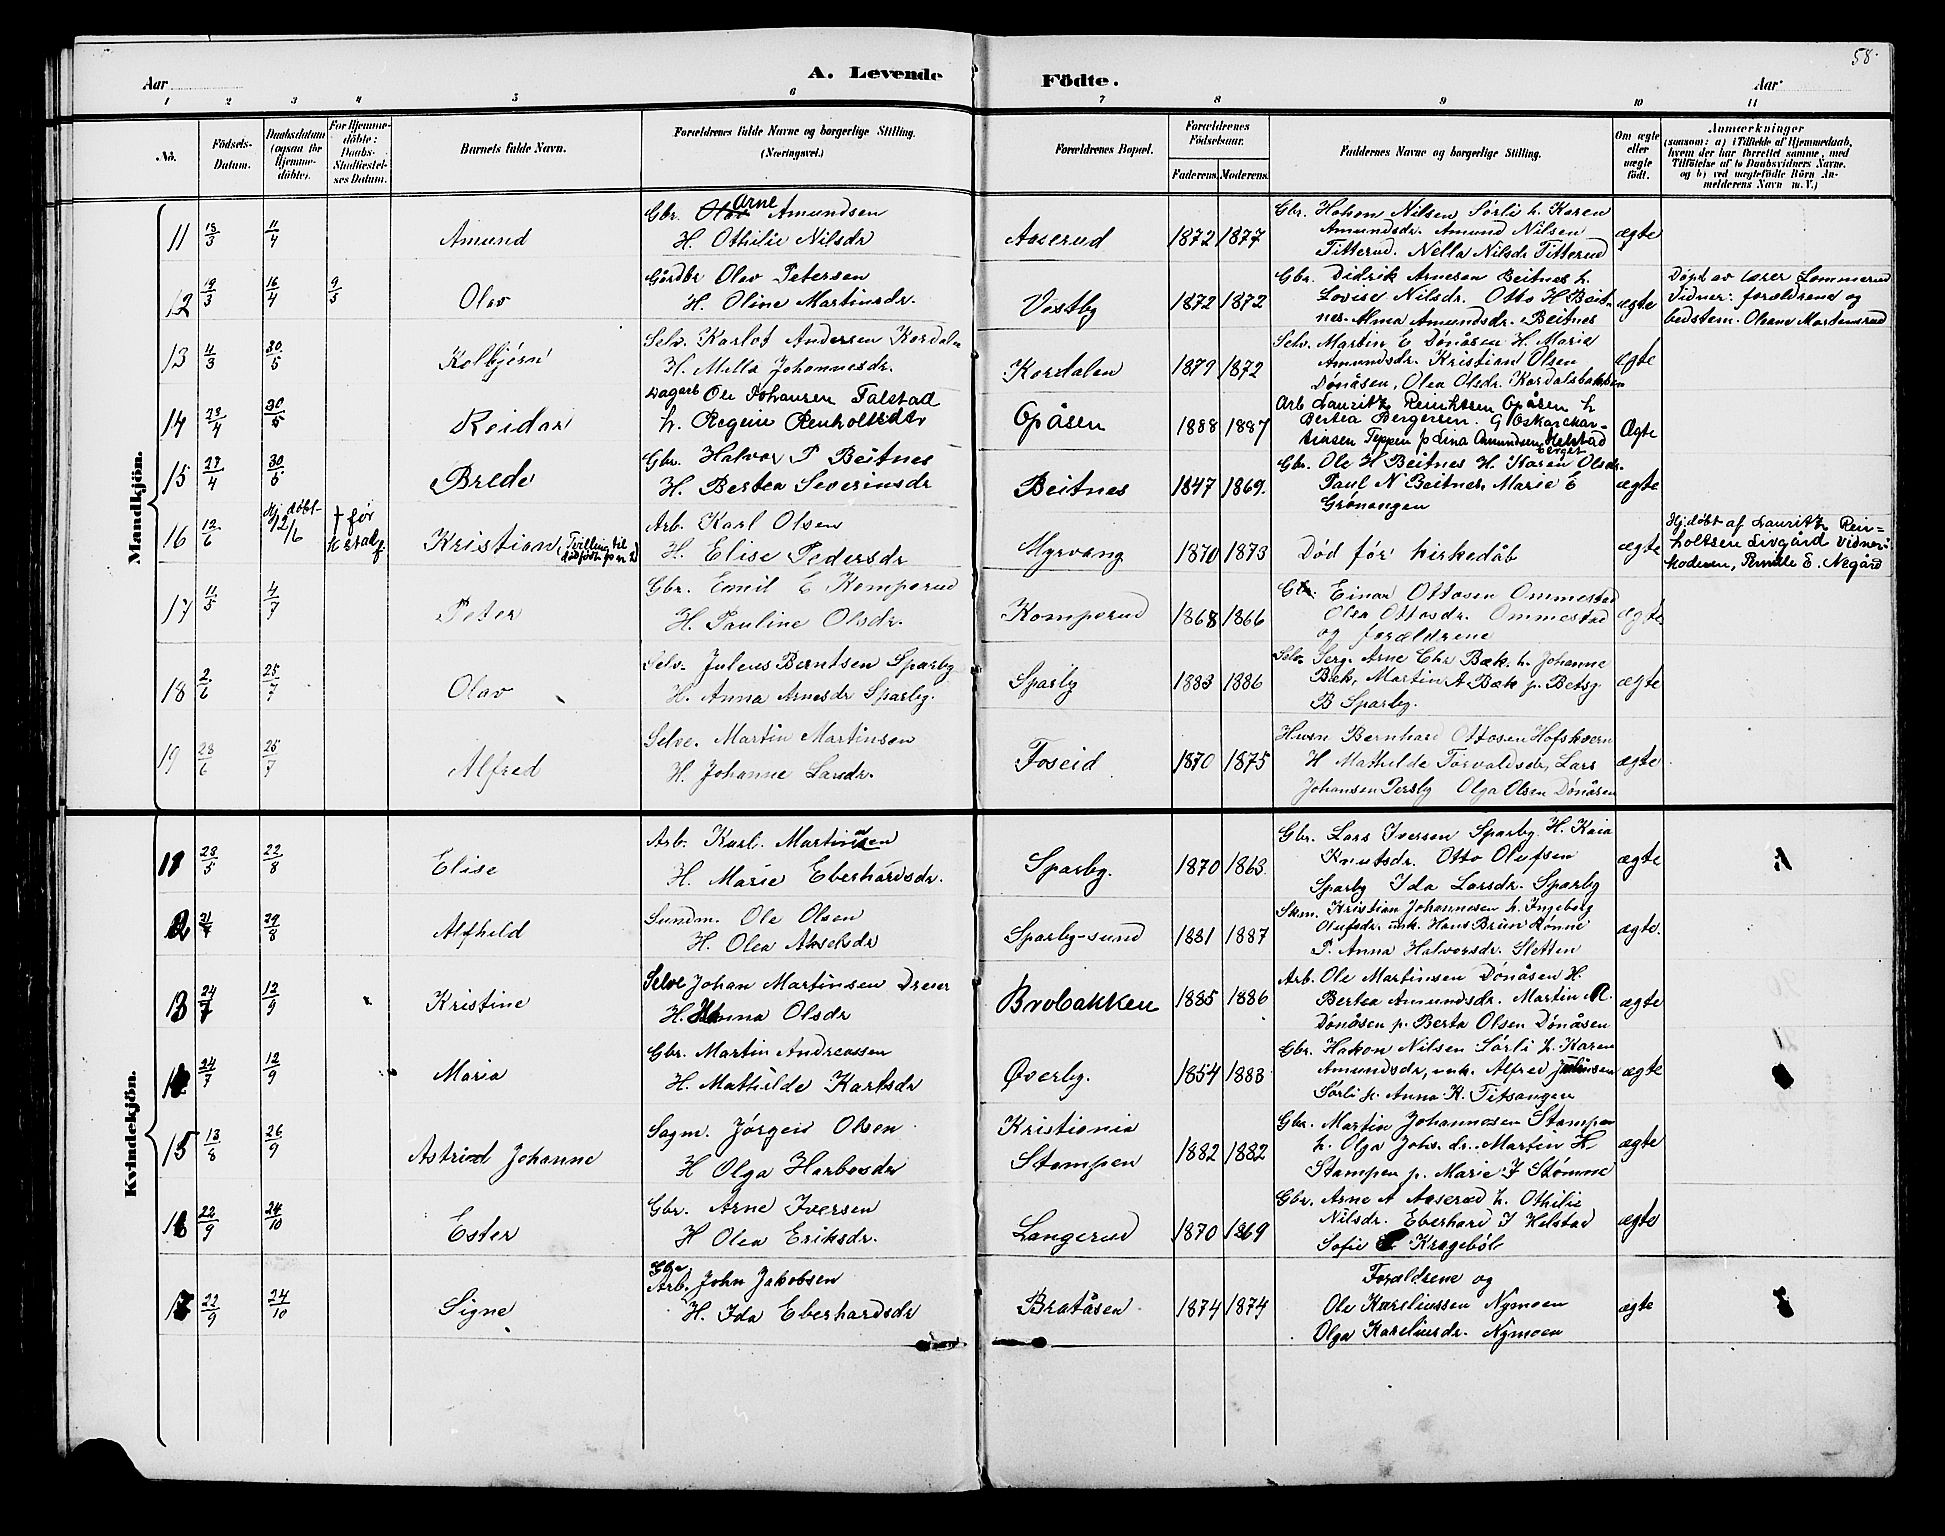 58.
Aar
A. Levende Födte.
Aar
1 2 3 4 5 6 7 8 9 10 11
No.
Födsels-Datum.
Daabsdatum (ogsaa for Hjemmedöbte).
For Hjemmedöbte: Daabs-Stadfæstelses Datum.
Barnets fulde Navn.
Forældrenes fulde Navne og borgerlige Stilling. (Næringsvei.)
Forældrenes Bopæl.
Forældrenes Födselsaar.
Faderens. Moderens.
Faddernes Navne og borgerlige Stilling.
Om ægte eller uægte född.
Anmærkninger
(saasom: a) i Tilfælde af Hjemmedaab, hvem der har forrettet samme, med Tilföielse af to Daabsvidners Navne. og b) ved uægtefödte Börn Anmelderens Navn m. V.)
Mandkjön.
11 13/3 11/4 Amund
Gbr. Olav Arne Amundsen
H. Othilie Nilsdr
Aaserud 1872 1877
Gbr. Hakon Nilsen Sørli h. Karen
Amundsdr. Amund Nilsen
Titterud. Nella Nilsdr Titterud
ægte
12 19/3 16/4 9/5 Olav
Gårdbr Olav Petersen
H. Oline Martinsdr.
Vestby 1872 1872
Gbr. Didrik Arnesen Beitnes h.
Lovise Nilsdr. Otto H Beit-
nes. Alma Amundsdr. Beitnes
ægte
Døpt av lærer Lommerud
Vidner: forældrene og
bedstem. Oleane Mortensrud
13 11/3 30/5 Kolbjørn
Selv. Karlot Andersen Kordalen
H. Mella Johannesdr.
Kordalen 1879 1872
Selv. Martin E Dønåsen H. Marie
Amundsdr. Kristian Olsen
Dønåsen, Olea Olsdr. Kordalsbakken
ægte
14 23/4 30/5 Reidar
Dagarb Ole Johansen Talstad
h. Regine Renholtsdtr
Opåsen 1888 1887
Arb Lauritz Reinholtsen Opåsen h
Bertea Bergersen. G Oskar Mar-
tinsen Teppen p Lina Amundsen Helstad
berget
Ægte
15 27/4 30/5 Brede
Gbr. Halvor P Beitnes
H. Bertea Severinsdr
Beitnes 1847 1869.
Gbr. Ole H Beitnes H. Karen Olsdr.
Paul N Beitnes, Marie E
Grønengen
ægte
16 12/6 Hj.døbt 12/6 † før stadf. Kristian (Tvilling til dødfødt pa nr 2)
Arb. Karl Olsen
H. Elise Pedersdr
Myrvang 1870 1873
Død før kirkedåb
ægte
Hj.døbt af Lauritz Rein-
holtsen Livgård Vidner:
Moderen, Pernille E. Negård
17 11/5 4/7 Peter
Gbr. Emil E Komperud
H. Pauline Olsdr.
Komperud 1868 1866
Gbr. Einar Ottosen Ommestad
Olea Ottosdr. Ommestad
og forældrene
ægte
18 2/6 25/7 Olav
Selv. Julius Berntsen Sparby
H. Anna Arnesdr Sparby.
Sparby 1883 1886
Selv Serg. Arne Chr Bæk h. Johanne
Bæk, Martin A Bæk p. Betsy
B Sparby.
ægte
19 23/6 25/7 Alfred
Selve. Martin Martinsen
H. Johanne Larsdr.
Foseid 1870 1875
Husm Bernhard Ottosen Hofskvern
H Mathilde Torvaldsdr, Lars
Johansen Persby Olga Olsen Dønåsen
ægte
Kvindekjön.
11 23/5 22/8 Elise
Arb. Karl. Martinsen
H. Marie Eberhardsdr.
Sparby. 1870 1863.
Gbr. Lars Iversen Sparby H. Kaia
Knutsdr. Otto Olufsen
Sparby Ida Larsdr. Sparby
ægte
12 21/7 29/8 Alfhild
Sundm. Ole Olsen
H. Olea Akselsdr
Sparby-sund 1881 1887
Skm. Kristian Johannesen h. Ingeborg
Olufsdr. unk. Hans Brun Rønne
P. Anna Halvorsdr. Sletten
ægte.
13 24/7 12/9 Kristine
Selve Johan Martinsen Dreier
H. Anna Olsdr
Brobakken 1885 1886
Arb. Ole Martinsen Dønåsen H.
Bertea Amundsdr. Martin A.
Dønåsen p. Berta Olsen Dønåsen
ægte
14 24/7 12/9 Maria
Gbr. Martin Andreassen
H. Mathilde Karlsdr
Øverby. 1854 1883
Gbr. Hakon Nilsen Sørli h. Karen
Amundsdr, unk. Alfred Jensen
Sørli p. Anna K. Titsangen
ægte
15 13/8 26/9 Astrid Johanne
Sagm. Jørgen Olsen
H Olga Harbosdr
Kristiania
Stampen 1882 1882
Gbr. Martin Johannesen Stampen
h. Olga Johs.dr. Martin H.
Stampen p. Marie J Stømme
ægte
16 22/9 24/10 Ester
Gbr. Arne Iversen
H Olea Eriksdr.
Langerud 1870 1869
Gbr. Arne A Aaserud h. Othilie
Nilsdr. Eberhard J Helstad
Sofie Kragebøl
ægte
17 22/9 24/10 Signe
Gbr
Arb. John Jakobsen
H. Ida Eberhardsdr
Bratåsen 1874 1874
Forældrene og
Ole Kareliussen Nymoen
Olga Kareliusdr. Nymoen
ægte